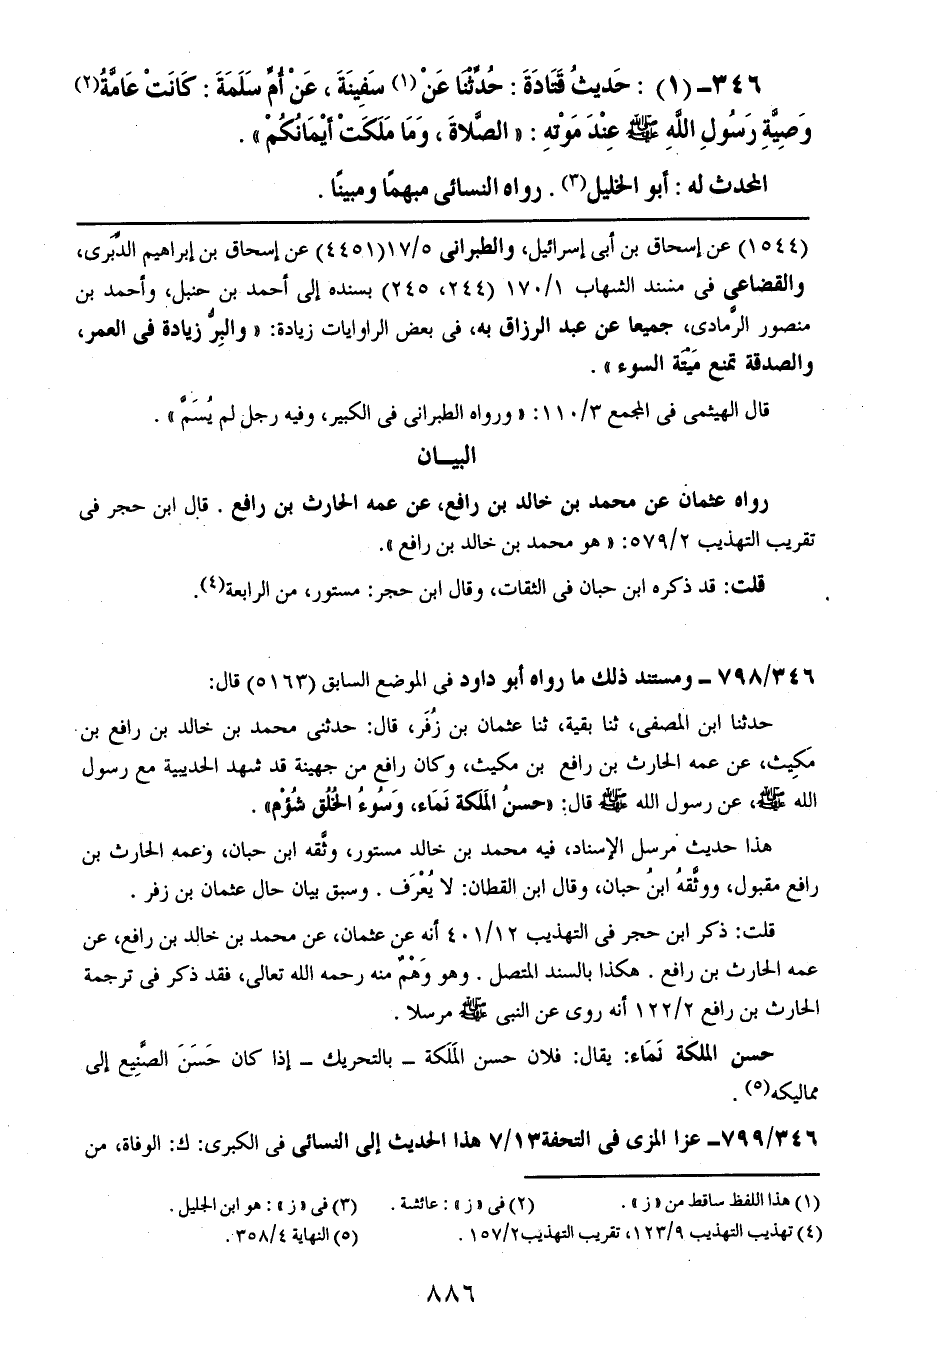 ٣٤٦ـ (١) : حَديثُ قَتَادَةَ : حُدِّثْنَا عَنْ (١) سَفِينَةَ ، عَنْ أُمِّ سَلَمَةَ : كَانَتْ عَامَّةُ (٢)
وَصِيَّةِ رَسُولِ اللَّهِ ﷺ عِنْدَ مَوْتِهِ : « الصَّلاَةَ ، وَمَا مَلَكَتْ أَيْمَانُكُمْ » .
المحدث له : أبو الخليل (٣) . رواه النسائى مبهمًا ومبينًا .
(١٥٤٤) عن إسحاق بن أبى إسرائيل، والطبرانى ١٧/٥ (٤٤٥١) عن إسحاق بن إبراهيم الدَّبَرى،
والقضاعى فى مسند الشهاب ١٧٠/١ (٢٤٤، ٢٤٥) بسنده إلى أحمد بن حنبل، وأحمد بن
منصور الرَّمادى، جميعا عن عبد الرزاق به، فى بعض الراوايات زيادة: « والبِرُّ زيادة فى العمر،
والصدقة تمنع مَيْتَة السوء » .
قال الهيثمى فى المجمع ١١٠/٣: « ورواه الطبرانى فى الكبير، وفيه رجل لم يُسَمَّ » .
البيــان
رواه عثمان عن محمد بن خالد بن رافع، عن عمه الحارث بن رافع . قال ابن حجر فى
تقريب التهذيب ٥٧٩/٢: « هو محمد بن خالد بن رافع ».
قلت: قد ذكره ابن حبان فى الثقات، وقال ابن حجر: مستور، من الرابعة (٤).
٧٩٨/٣٤٦ ـ ومستند ذلك ما رواه أبو داود فى الموضع السابق (٥١٦٣) قال:
حدثنا ابن المصفى، ثنا بقية، ثنا عثمان بن زُفَر، قال: حدثنى محمد بن خالد بن رافع بن
مَكِيث، عن عمه الحارث بن رافع بن مكيث، وكان رافع من جهينة قد شهد الحديبية مع رسول
الله ﷺ، عن رسول الله ﷺ قال: «حسنُ المَلَكة نَمَاء، وَسُوءُ الخُلُق شُؤْم» .
هذا حديث مرسل الإسناد، فيه محمد بن خالد مستور، وثَّقه ابن حبان، وعمه الحارث بن
رافع مقبول، ووثَّقهُ ابنُ حبان، وقال ابن القطان: لا يُعْرَف . وسبق بيان حال عثمان بن زفر .
قلت: ذكر ابن حجر فى التهذيب ٤٠١/١٢ أنه عن عثمان، عن محمد بن خالد بن رافع، عن
عمه الحارث بن رافع . هكذا بالسند المتصل . وهو وَهْمٌ منه رحمه الله تعالى، فقد ذكر فى ترجمة
الحارث بن رافع ١٢٢/٢ أنه روى عن النبى ﷺ مرسلا .
حسن الملكة نَمَاء: يقال: فلان حسن المَلَكة ـ بالتحريك ـ إذا كان حَسَنَ الصَّنِيع إلى
مماليكه (٥) .
٧٩٩/٣٤٦ـ عزا المزى فى التحفة ٧/١٣ هذا الحديث إلى النسائى فى الكبرى: ك: الوفاة، من
(١) هذا اللفظ ساقط من « ز » . (٢) فى « ز » : عائشة . (٣) فى « ز » : هو ابن الجليل .
(٤) تهذيب التهذيب ١٢٣/٩، تقريب التهذيب ١٥٧/٢ . (٥) النهاية ٣٥٨/٤ .
٨٨٦